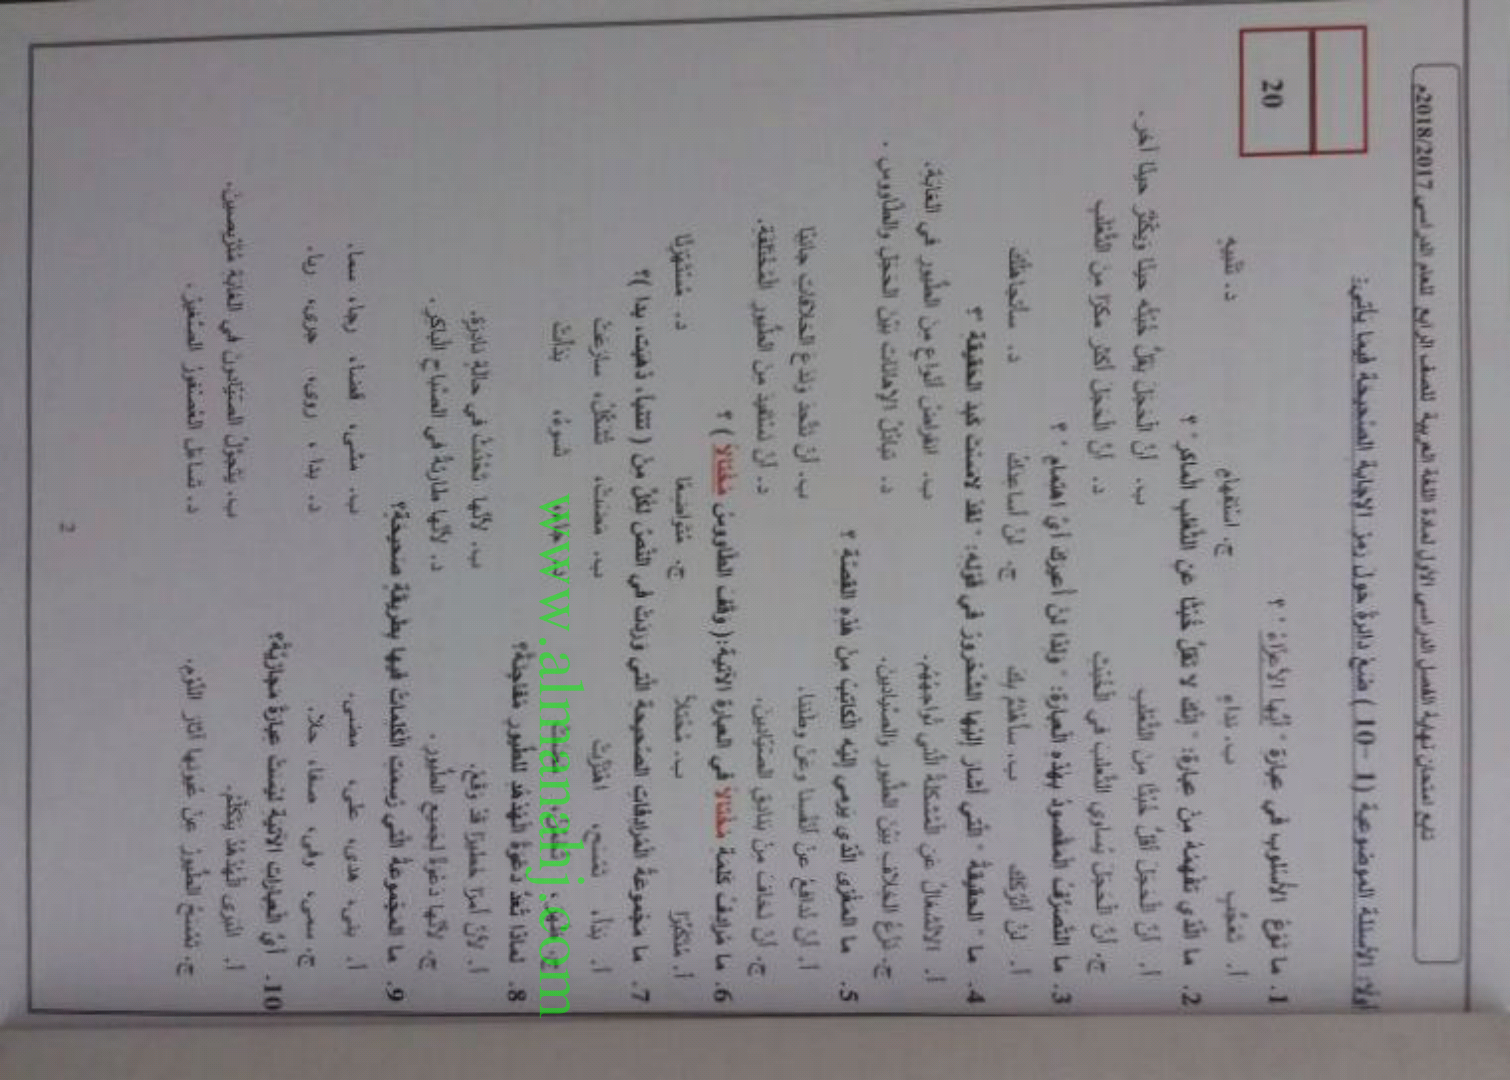 تابع امتحان نهاية الفصل الدراسي الأول لمادة اللغة العربية للصف الرابع للعام الدراسي 2018/2017م
20
أولًا: الأسئلة الموضوعية (1 -10) ضع دائرة حول رمز الإجابة الصحيحة فيما يأتي:
1. ما نوع الأسلوب في عبارة " أيها الأعزاء " ؟
أ. تعجب ب. نداء ج. استفهام د. تنبيه
2. ما الذي تفهمه من عبارة: " إنك لا تقل خبثًا عن الثعلب الماكر" ؟
أ. أن الحجل أقل خبثًا من الثعلب ب. أن الحجل يقل خبثه حينًا ويكثر حينًا آخر.
ج. أن الحجل يساوي الثعلب في الخبث د. أن الحجل أكثر مكرًا من الثعلب
3. ما التصرف المقصود بهذه العبارة: " ولذا لن أعيرك أي اهتمام " ؟
أ. لن أتركك ب. سأهتم بك ج. لن أساعدك د. سأتجاهلك
4. ما " الحقيقة " التي أشار إليها الشحرور في قوله: " لقد لامست كبد الحقيقة " ؟
أ. الانشغال عن المشكلة التي تواجههم. ب. انقراض أنواع من الطيور في الغابة.
ج. نزع الخلاف بين الطيور والصيادين. د. تبادل الإهانات بين الحجل والطاووس .
5. ما المغزى الذي يرمي إليه الكاتب من هذه القصة ؟
أ. أن ندافع عن أنفسنا وعن وطننا. ب. أن نتحد وندع الخلافات جانبًا
ج. أن نخاف من بنادق الصيادين. د. أن نستفيد من الطيور المختلفة.
6. ما مرادف كلمة مختالًا في العبارة الآتية:( وقف الطاووس مختالًا ) ؟
أ. متكبرًا ب. مختلًا ج. متواضعًا د. مستهزئًا
7. ما مجموعة المرادفات الصحيحة التي وردت في النص لكل من ( تتنبأ، ذهبت، بدا )؟
أ. بدأ، تسمح، اهتزت ب. مضت، تشكل، سارعت
بدأت
8. لماذا تعد دعوة الهدهد للطيور مفاجئة؟
أ. لأن أمرًا خطيرًا قد وقع. ب. لأنها تحدث في حالة نادرة.
ج. لأنها دعوة لجميع الطيور. د. لأنها طارئة في الصباح الباكر.
9. ما المجموعة التي رسمت الكلمات فيها بطريقة صحيحة؟
أ. بنى، هدى، على، مضى. ب. مشى، قضا، رجا، سما.
ج. سعى، وفى، صفا، حلا. د. بدا ، روى، جرى، ربا.
10. أي العبارات الآتية ليست عبارة مجازية؟
أ. انبرى الهدهد يتكلم. ب. يتجول الصيادون في الغابة متربصين.
ج. تمسح الطيور عن عيونها آثار النوم. د. تساءل العصفور الصغير.
2
www.almanahj.com